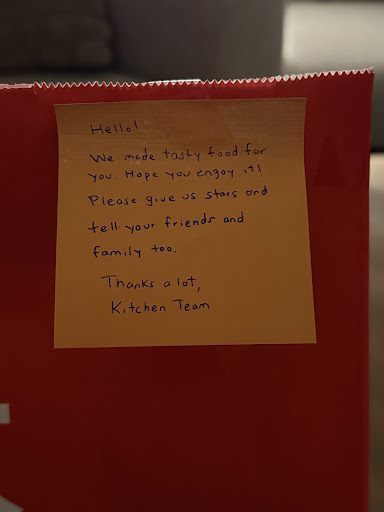 Hello!
We made tasty food for
you. Hope you engoy it!
Please give us stars and
tell your friends and
family too.
Thanks a lot,
Kitchen Team